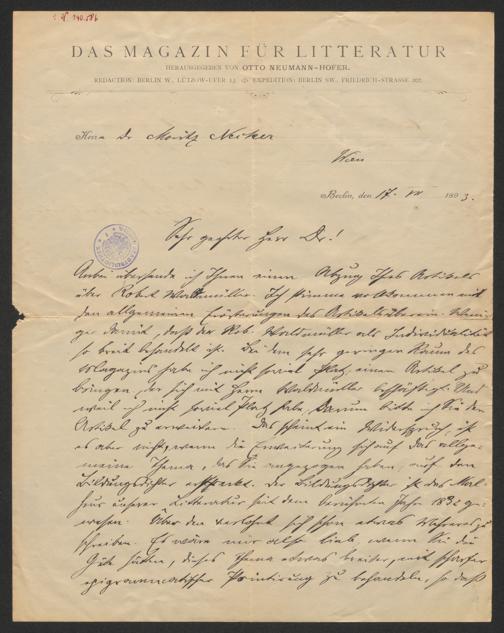 I. N. 140.586
DAS MAGAZIN FÜR LITTERATUR
HERAUSGEGEBEN VON OTTO NEUMANN-HOFER.
REDACTION: BERLIN W., LÜTZOW-UFER EXPEDITION: BERLIN SW., FRIEDRICH-STRASSE 207.
Herrn Dr Moritz Necker
Wien
Berlin, den 17. VII 1893.
Sehr geehrter Herr Dr.!
Anbei übersende ich Ihnen einen Abzug Ihres Artikels
über Robert Waldmüller. Ich stimme vollkommen mit
den allgemeinen Erörterungen des Artikels überein. Weni-
ger damit, daß der Rob. Waldmüller als Individualität
so breit behandelt ist. Bei dem sehr geringen Raum des
Magazins habe ich nicht soviel Platz einen Artikel zu
bringen, der sich mit Herrn Waldmüller beschäftigt. Und
weil ich nicht soviel Platz habe, darum bitte ich Sie den
Artikel zu erweitern. Das scheint ein Widerspruch, ist
es aber nicht, wenn die Erweiterung sich auf das allge-
meine Thema, das Sie angezogen haben, auf den
Bildungsdichter erstreckt. Der Bildungsdichter ist das
unserer Litteratur seit dem berühmten Jahr 1832 ge-
wesen. Über den verlohnt sich schon etwas Näheres zu
schreiben. Es wäre mir also lieb, wenn Sie die
Güte hätten, dieses Thema etwas breiter, mit scharfer
epigrammatischer Pointirung zu behandeln, so daß